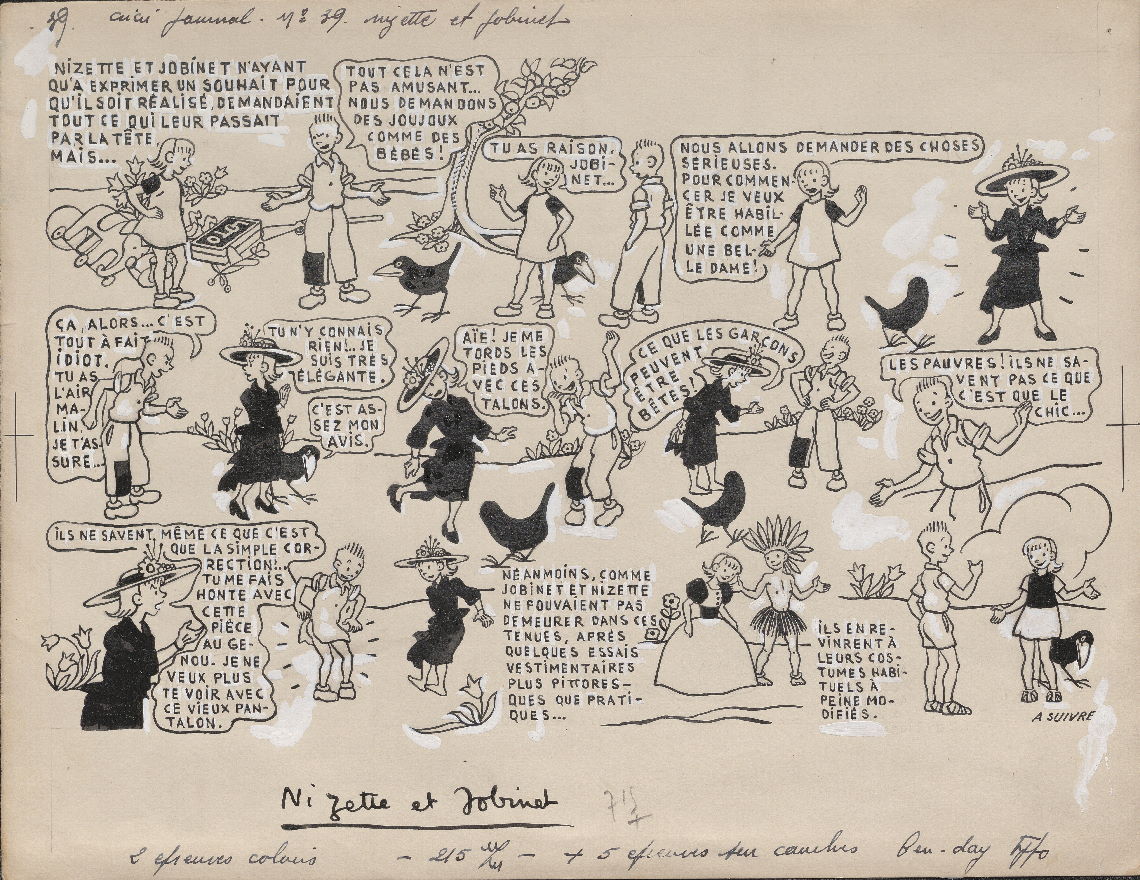 39. cucu journal. n° 39. nizette et Jobinet
NIZETTE ET JOBINET N'AYANT
QU'A EXPRIMER UN SOUHAIT POUR
QU'IL SOIT RÉALISÉ, DEMANDAIENT
TOUT CE QUI LEUR PASSAIT
PAR LA TÊTE
MAIS...
TOUT CELA N'EST
PAS AMUSANT...
NOUS DEMANDONS
DES JOUJOUX
COMME DES
BÉBÉS!
TU AS RAISON.
JOBI-
NET...
NOUS ALLONS DEMANDER DES CHOSES
SÉRIEUSES.
POUR COMMEN-
CER JE VEUX
ÊTRE HABIL-
LÉE COMME
UNE BEL-
LE DAME!
ÇA, ALORS... C'EST
TOUT À FAIT
IDIOT.
TU AS
L'AIR
MA-
LIN
JE T'AS-
SURE...
TU N'Y CONNAIS
RIEN!.. JE
SUIS TRÈS
ÉLÉGANTE.
C'EST AS-
SEZ MON
AVIS.
AÏE! JE ME
TORDS LES
PIEDS A-
VEC CES
TALONS.
CE QUE LES GARÇONS
PEUVENT
ÊTRE
BÊTES!
LES PAUVRES! ILS NE SA-
VENT PAS CE QUE
C'EST QUE LE
CHIC...
ILS NE SAVENT MÊME CE QUE C'EST
QUE LA SIMPLE COR-
RECTION!..
TU ME FAIS
HONTE AVEC
CETTE
PIÈCE
AU GE-
NOU. JE NE
VEUX PLUS
TE VOIR AVEC
CE VIEUX PAN-
TALON.
NÉANMOINS, COMME
JOBINET ET NIZETTE
NE POUVAIENT PAS
DEMEURER DANS CES
TENUES, APRÈS
QUELQUES ESSAIS
VESTIMENTAIRES
PLUS PITTORES-
QUES QUE PRATI-
QUES...
ILS EN RE-
VINRENT À
LEURS COS-
TUMES HABI-
TUELS À
PEINE MO-
DIFIÉS.
A SUIVRE
Nizette et Jobinet
2 épreuves coloris - 215 - + 5 épreuves sur couchés Ben-day